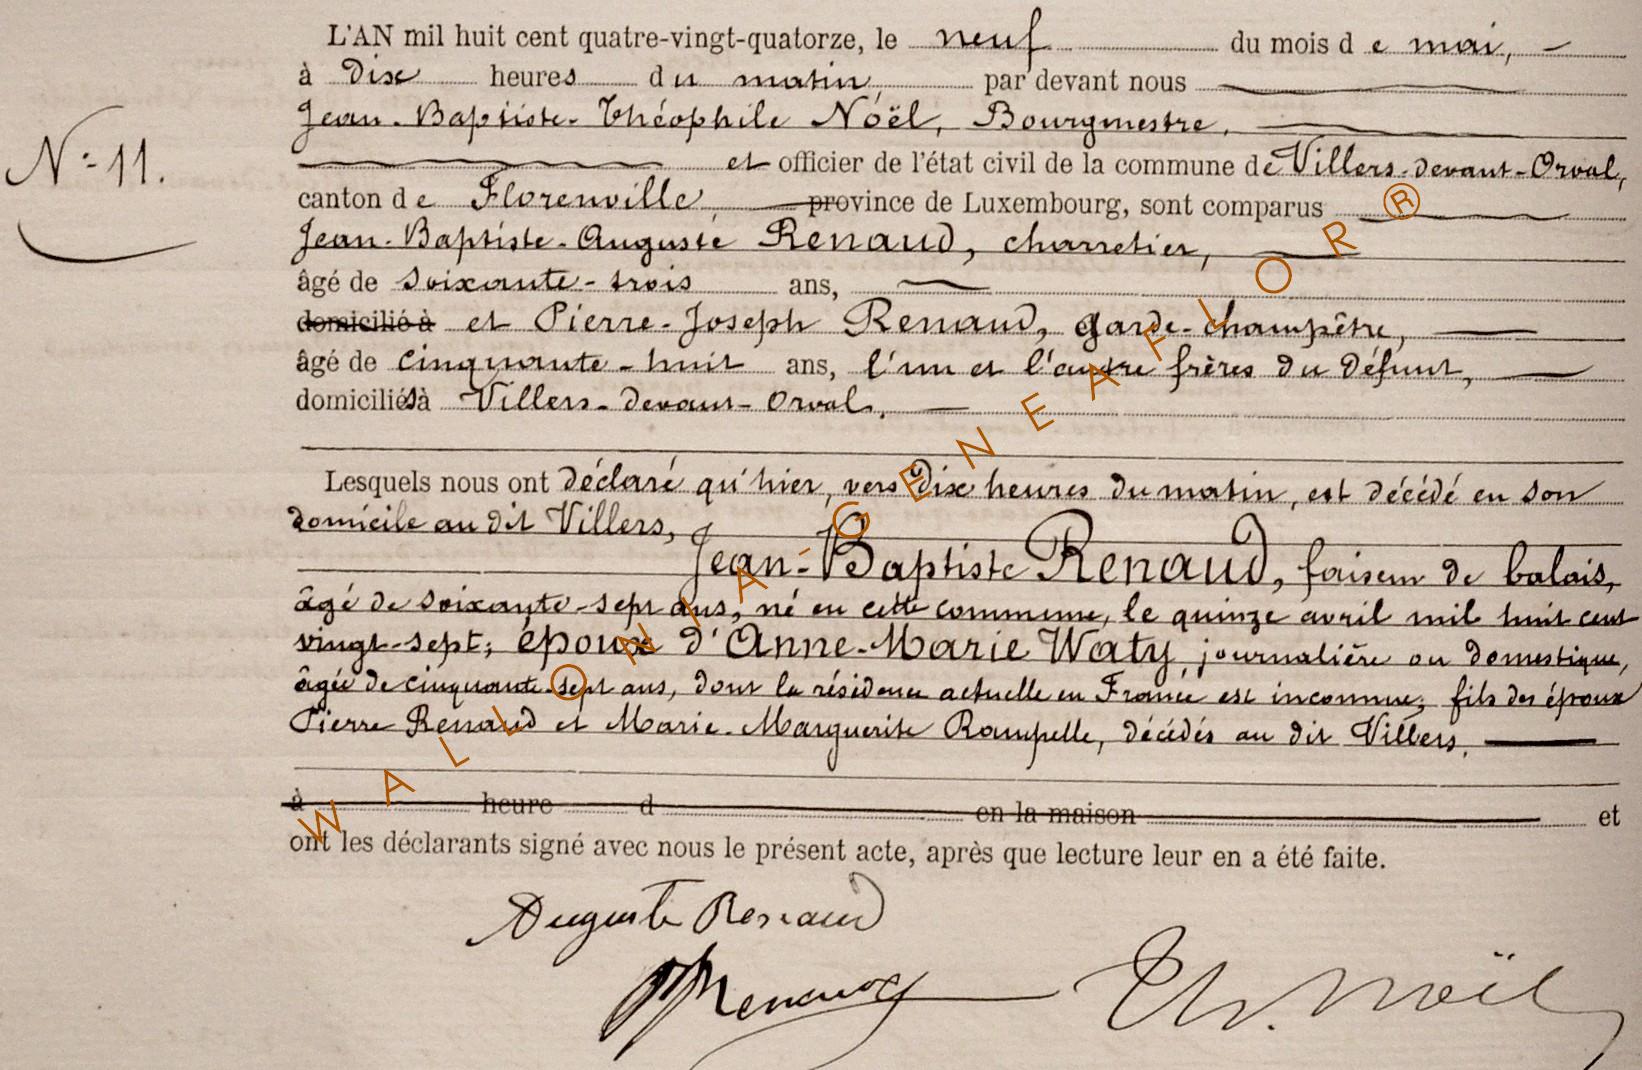 L'AN mil huit cent quatre-vingt-quatorze, le neuf du mois de mai,
à dix heures du matin, par devant nous
Jean-Baptiste-Théophile Noël, Bourgmestre,
N° 11.
et officier de l'état civil de la commune de Villers-devant-Orval,
canton de Florenville, province de Luxembourg, sont comparus
Jean-Baptiste-Auguste Renaud, charretier,
âgé de soixante-trois ans,
domicilié à et Pierre-Joseph Renaud, garde-champêtre,
âgé de cinquante-huit ans, l'un et l'autre frères du défunt,
domiciliés à Villers-devant-Orval.
Lesquels nous ont déclaré qu'hier, vers dix heures du matin, est décédé en son
domicile au dit Villers,
Jean-Baptiste Renaud, faiseur de balais,
âgé de soixante-sept ans, né en cette commune, le quinze avril mil huit cent
vingt-sept; époux d'Anne-Marie Waty, journalière ou domestique,
âgée de cinquante-sept ans, dont la résidence actuelle en France est inconnue; fils des époux
Pierre Renaud et Marie-Marguerite Rampelle, décédés au dit Villers.
à heure d en la maison et
ont les déclarants signé avec nous le présent acte, après que lecture leur en a été faite.
Auguste Renaud
PJRenaud
Th. Noël
WALLONIA-GENEAFLOR®